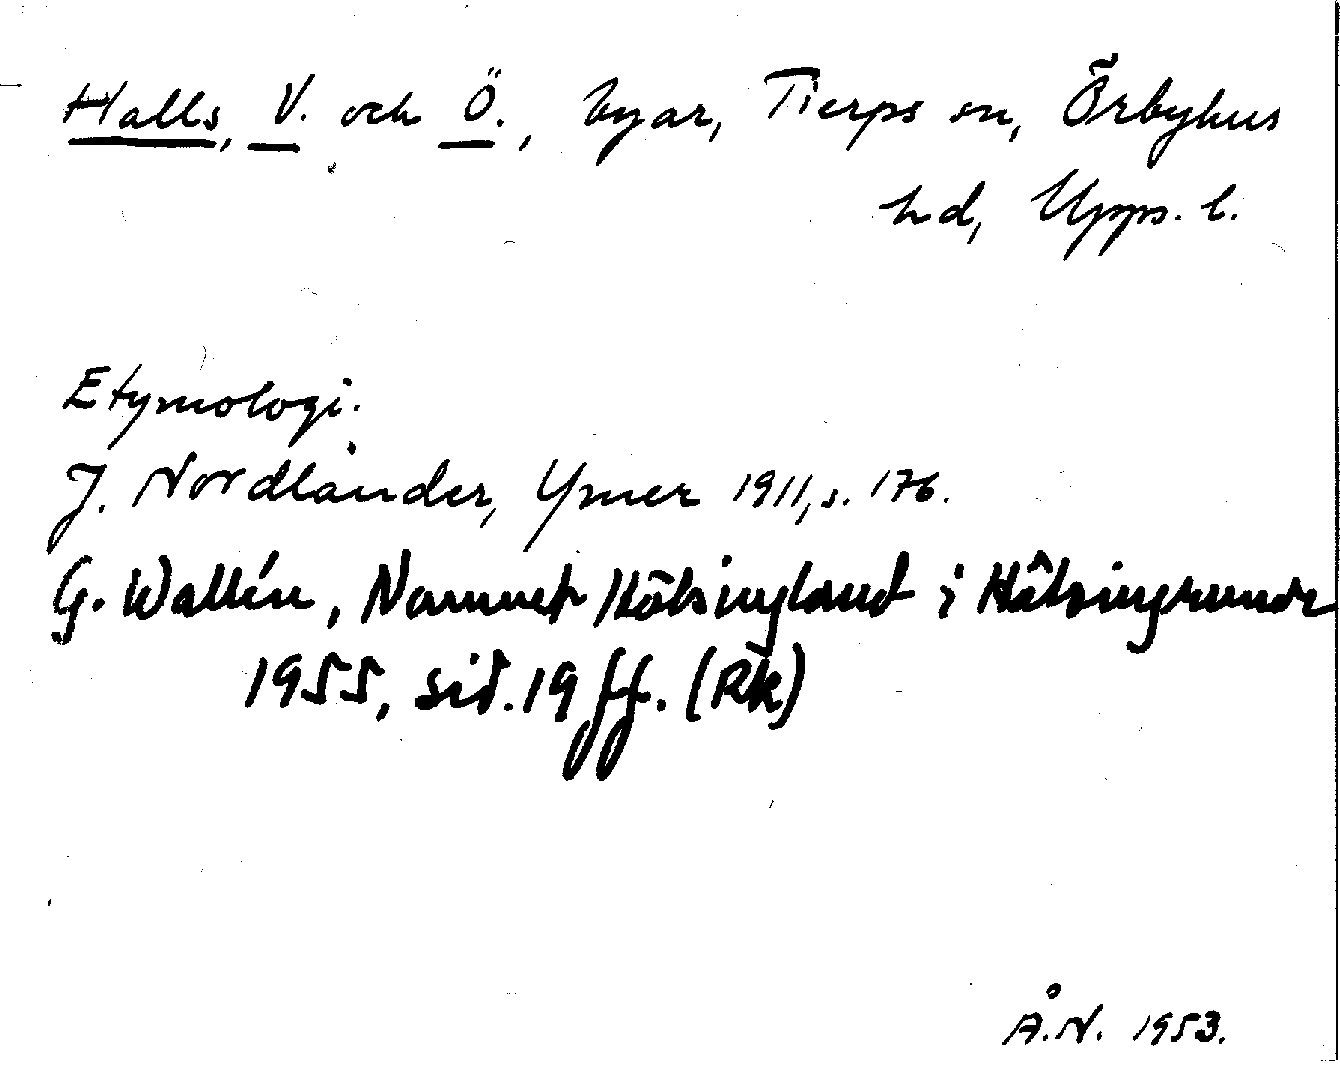 Halls, V. och Ö., byar, Tierps sn, Örbyhus
hd, Upps. l.
Etymologi.
J. Nordlander, Ymer 1911, s. 176.
G. Wallin, Namnet Hälsingland i Hälsingerunor
1955, sid. 19 ff. (Rk)
Å.N. 1953.